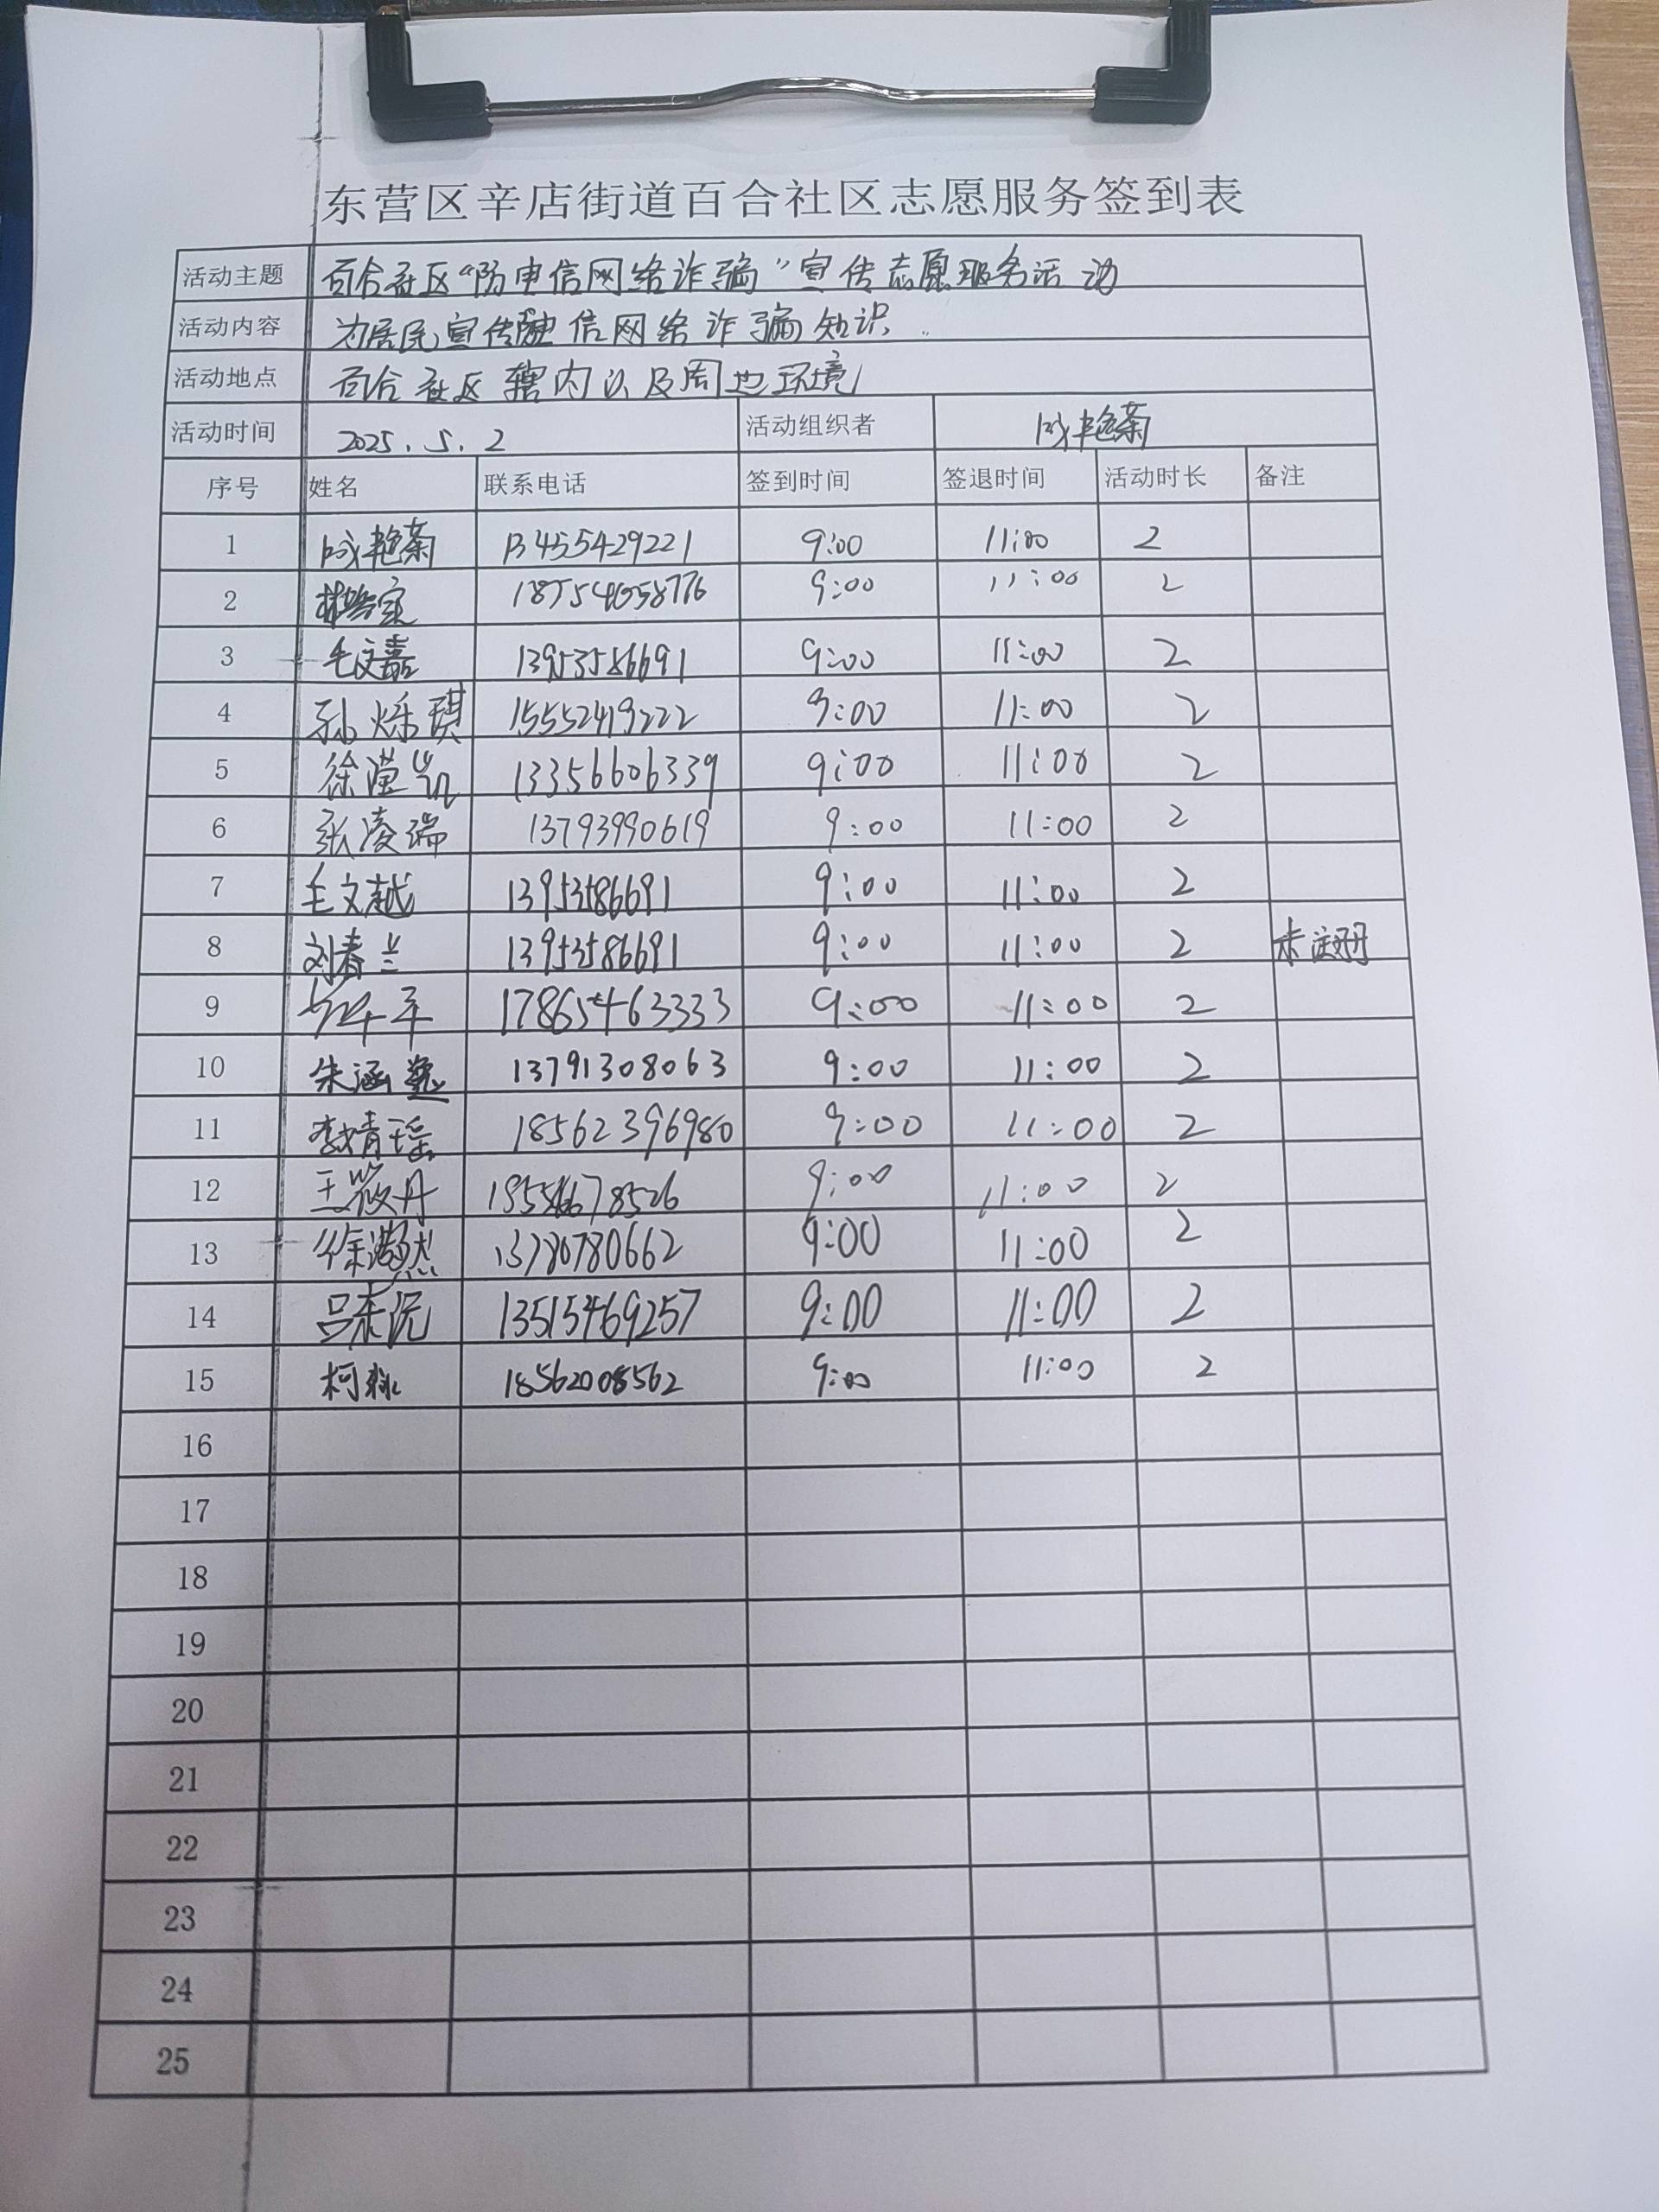 东营区辛店街道百合社区志愿服务签到表
活动主题 百合社区“防电信网络诈骗”宣传志愿服务活动
活动内容 为居民宣传 信网络诈骗知识
活动地点 百合社区辖内以及周边环境
活动时间 2025.5.2 活动组织者
序号 姓名 联系电话 签到时间 签退时间 活动时长 备注
1 13455429221 9:00 11:00 2
2 9:00 11:00 2
3 毛文嘉 13953586691 9:00 11:00 2
4 孙烁琪 15552419222 9:00 11:00 2
5 徐滢凯 13356606339 9:00 11:00 2
6 张凌瑞 13793990619 9:00 11:00 2
7 毛文越 13953586691 9:00 11:00 2
8 刘春兰 13953586691 9:00 11:00 2 未注册
9 17865463333 9:00 11:00 2
10 朱涵 13791308063 9:00 11:00 2
11 李婧瑶 18562396980 9:00 11:00 2
12 王筱丹 9:00 11:00 2
13 13780780662 9:00 11:00 2
14 13515469257 9:00 11:00 2
15 18562008562 9:00 11:00 2
16
17
18
19
20
21
22
23
24
25